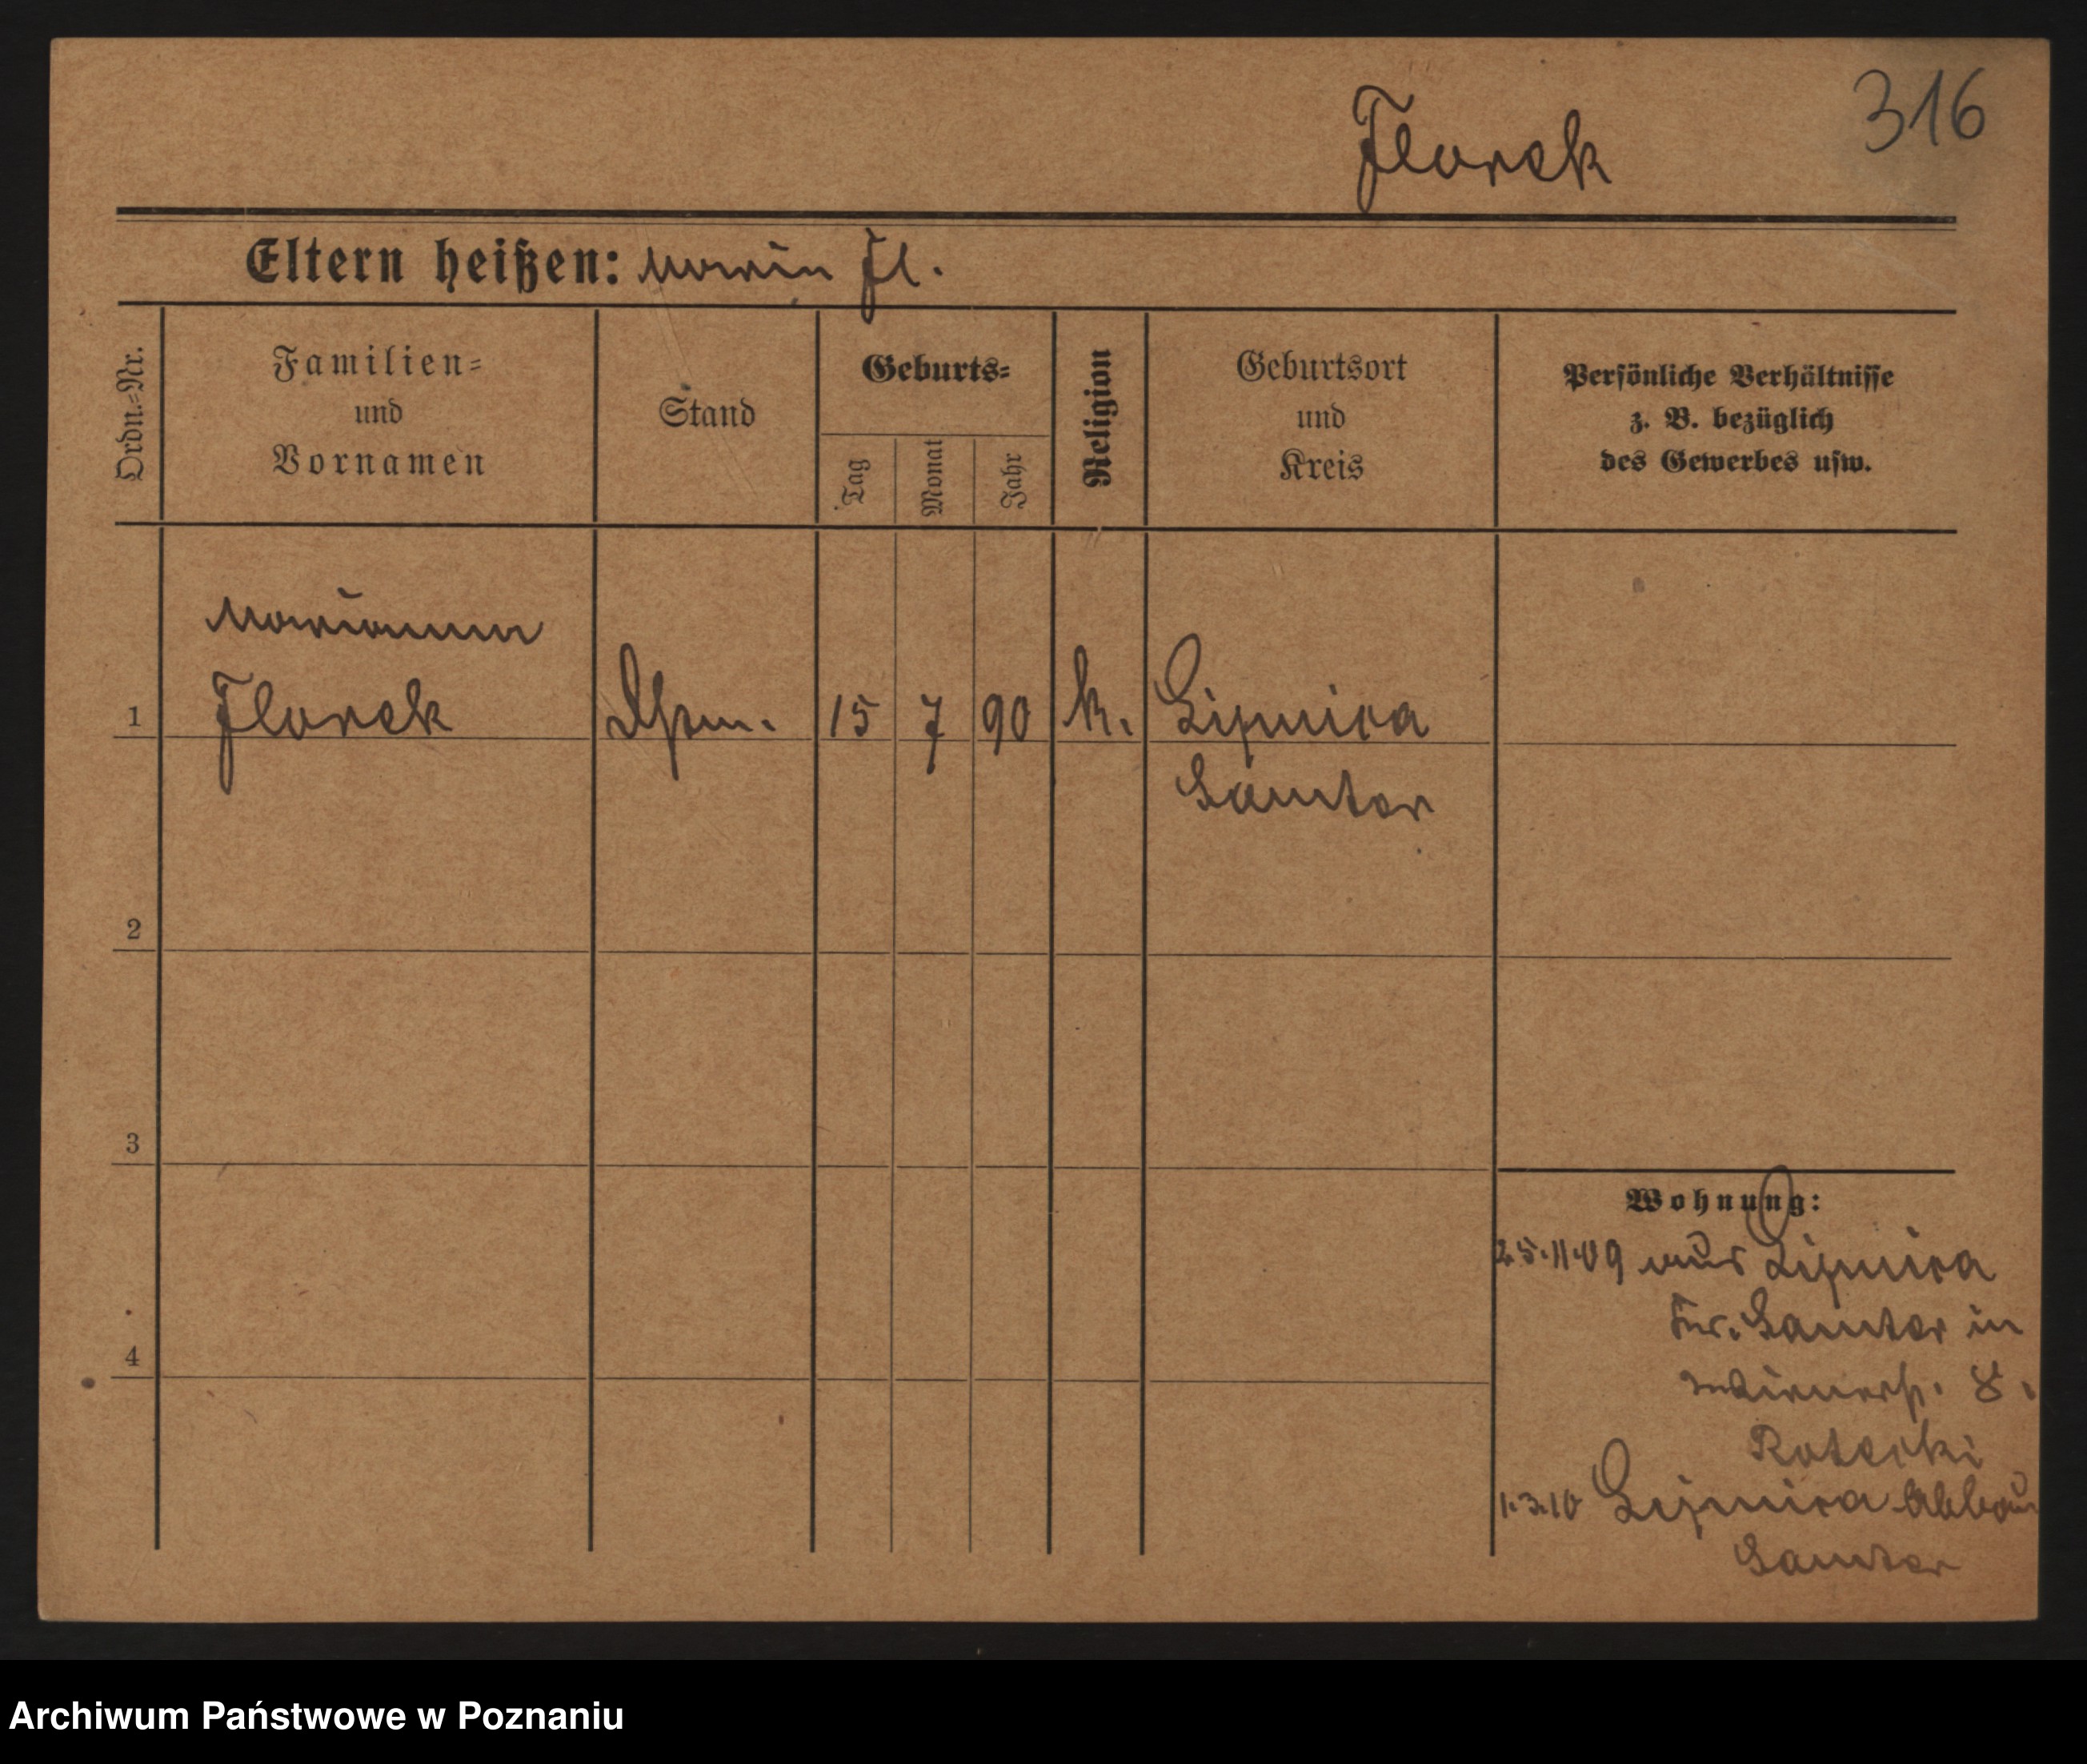 316
Florek
Eltern heißen: Maria Fl.
Ordn.-Nr.
Familien-
und
Vornamen
Stand
Geburts-
Tag
Monat
Jahr
Religion
Geburtsort
und
Kreis
Persönliche Verhältnisse
z. B. bezüglich
des Gewerbes usw.
Marianna
1 Florek 15 7 90 k. Lipnica
Samter
2
3
4
Wohnung:
25.11.09 aus Lipnica
Kr. Samter in
8.
Ratecki
1.3.10 Lipnica Abbau
Samter
Archiwum Państwowe w Poznaniu